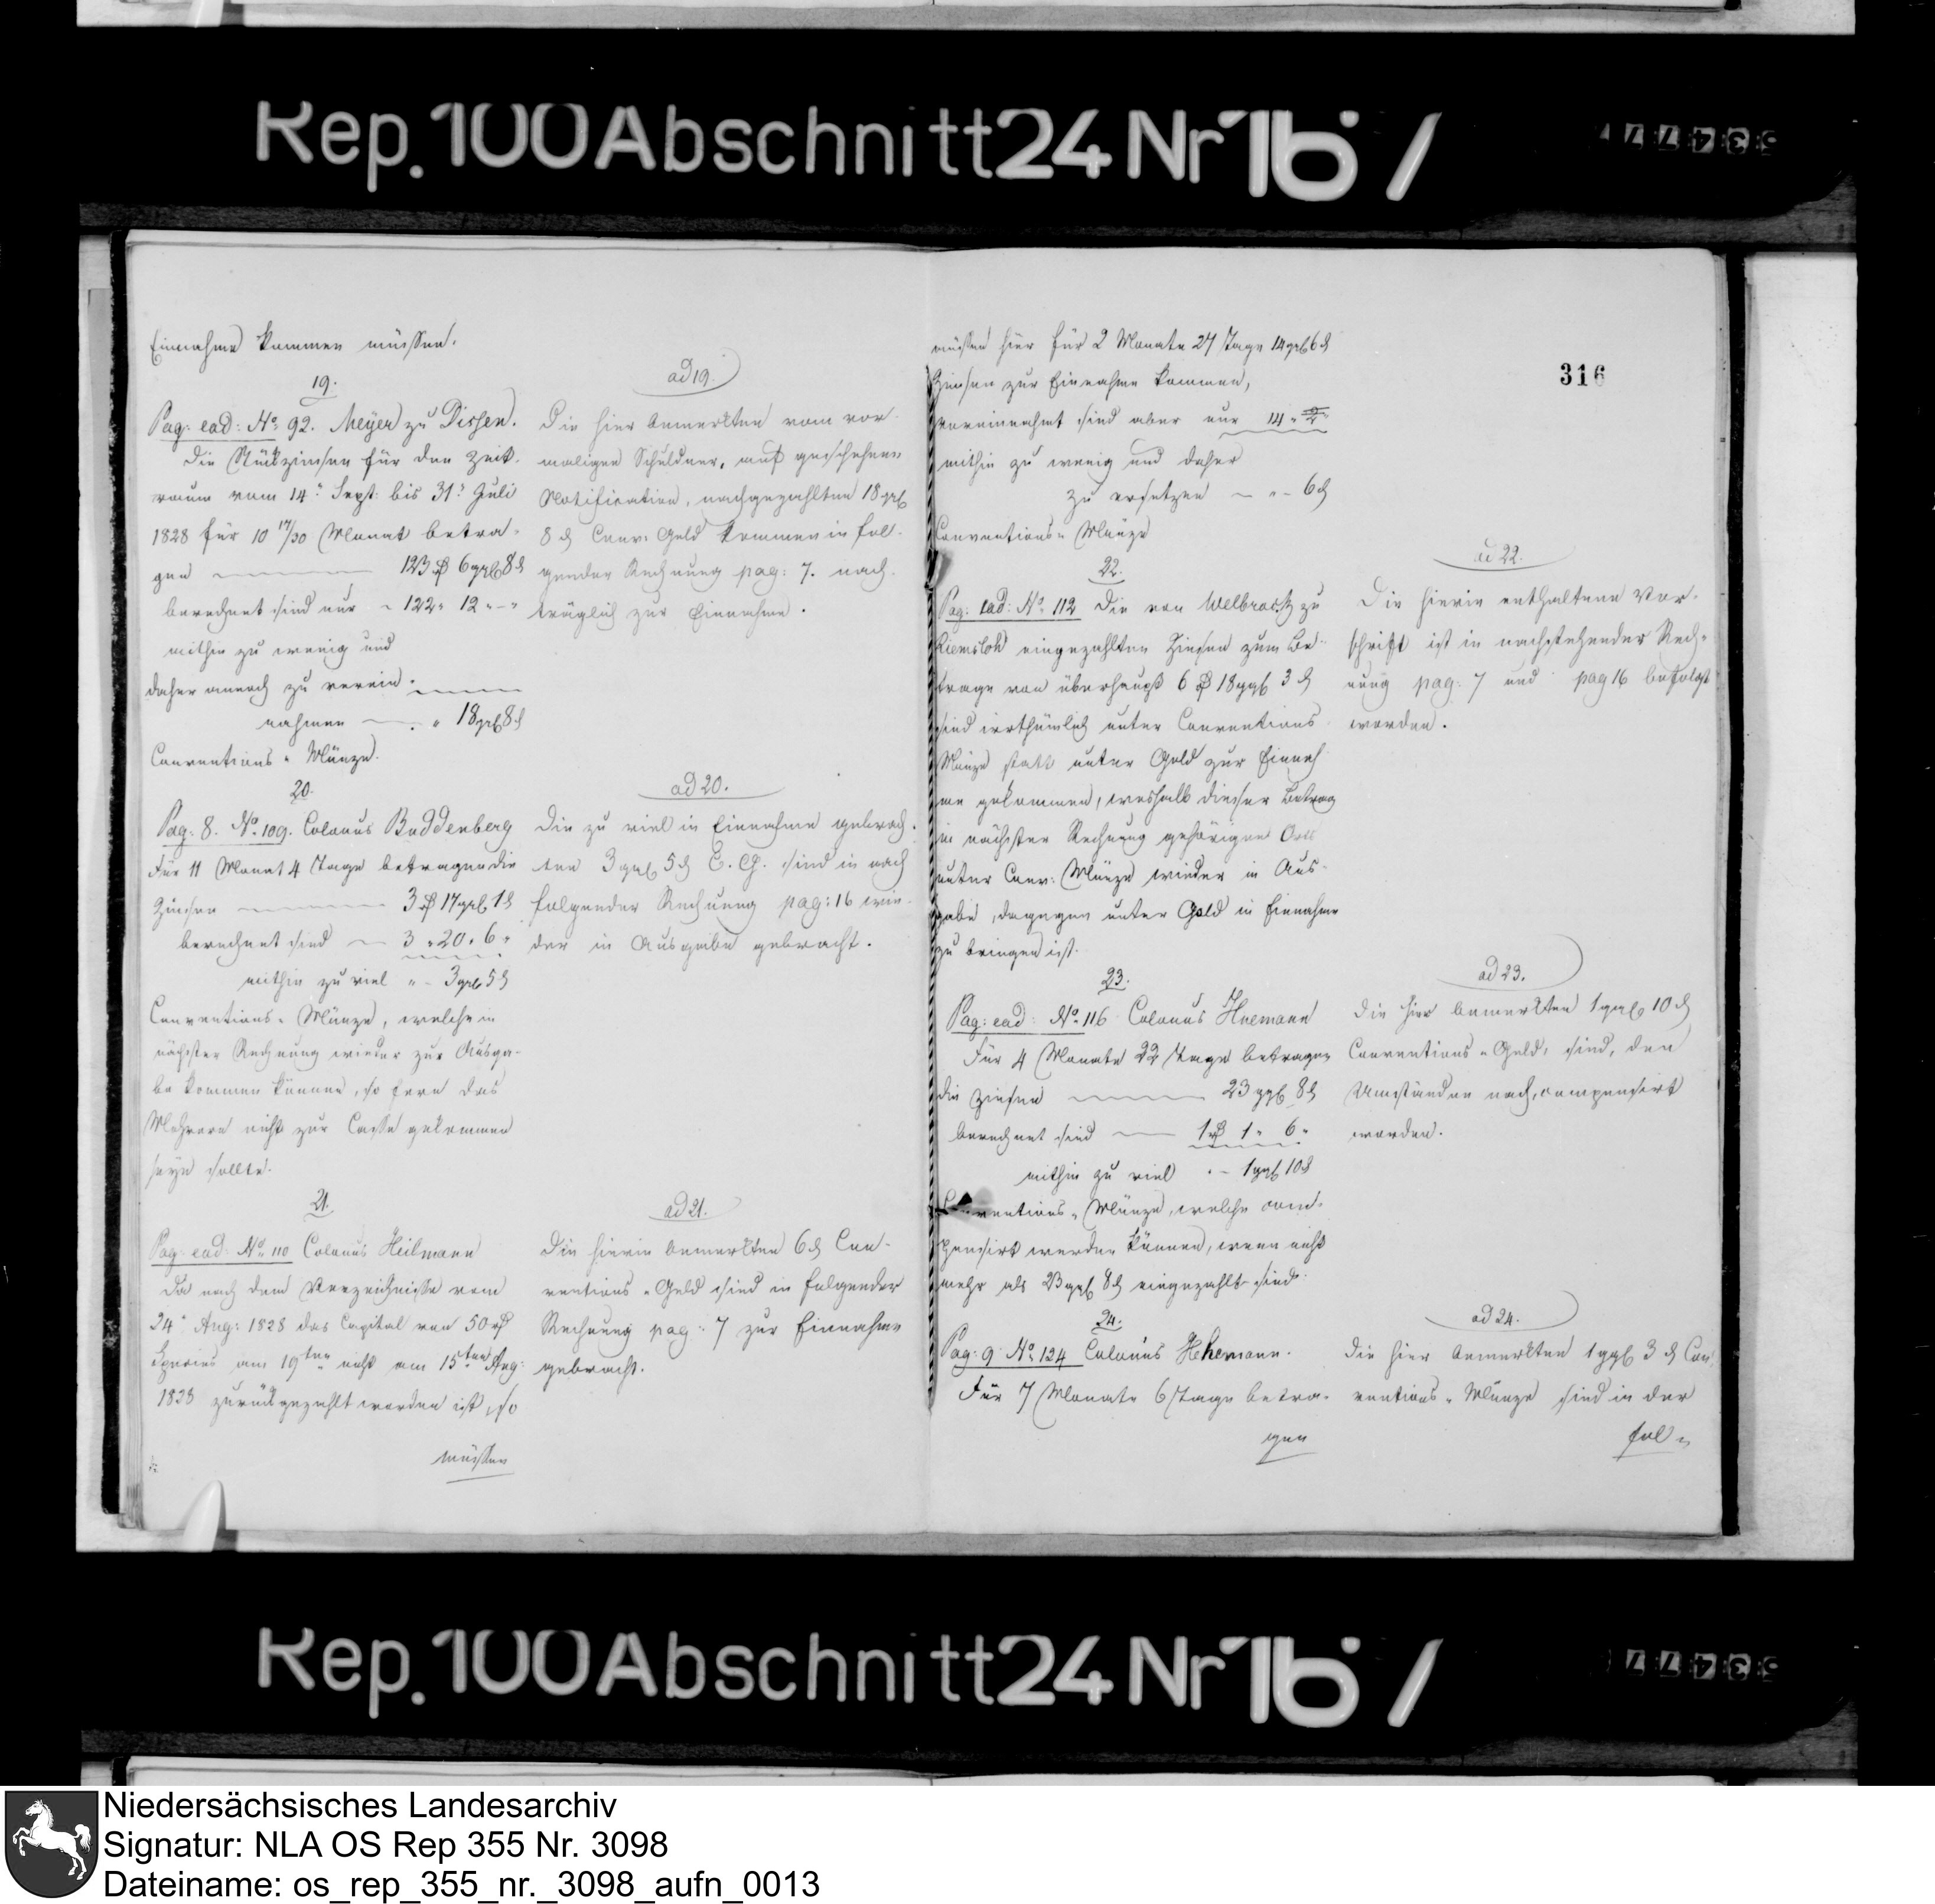 Rep. 100 Abschnitt 24 Nr 167
Einnahme kommen müssen.
19.
Pag: ead: No. 92. Meyer zu Dissen.
Die Stückzinsen für den Zeit-
raum vom 14t Sept: bis 31t Juli
1828 für 10 17/30 Monat betra-
gen 123 rß 6 ggl 8 d
berechnet sind nur 122 " 12 " - "
mithin zu wenig und
daher annoch zu verein-
nahmen " 18 ggl 8 d
Conventions-Münze.
20.
Pag: 8. No. 109. Colonus Buddenberg
Für 11 Monat 4 Tage betragen die
Zinsen 3 rß 17 ggl 1 d
berechnet sind 3 " 20 " 6 "
mithin zu viel " - 3 ggl 5 d
Conventions-Münze, welche in
nächster Rechnung wieder zur Ausga-
be kommen können, so fern das
Mehrere nicht zur Casse gekommen
seyn sollte.
21.
Pag: ead: No. 110 Colonus Heilmann
Da nach dem Verzeichnisse vom
24t Aug: 1828 das Capital von 50 rß
Species am 19ten nicht am 15ten Aug:
1828 zurückgezahlt worden ist, so
müssen
ad 19.
Die hier bemerkten vom vor-
maligen Schuldner, auf geschehene
Notification, nachgezahlten 18 ggl
8 d Conv: Geld kommen in fol-
gender Rechnung pag: 7. nach-
träglich zur Einnahme.
ad 20.
Die zu viel in Einnahme gebrach-
ten 3 ggl 5 d C. G. sind in nach
folgender Rechnung pag: 16 wie-
der in Ausgabe gebracht.
ad 21.
Die hierin bemerkten 6 d Con-
ventions-Geld sind in folgender
Rechnung pag: 7 zur Einnahme
gebracht.
316
müssen hier für 2 Monate 27 Tage 14 ggl 6 d
Zinsen zur Einnahme kommen,
vereinnahmt sind aber nur 14 "
mithin zu wenig und daher
zu ersetzen - " - 6 d
Conventions-Münze
22.
Pag: ead: No. 112 Die von Welbrock zu
Riemsloh eingezahlten Zinsen zum Be-
trage von überhaupt 6 rß 18 ggl 3 d
sind irrthümlich unter Conventions
Münze statt unter Gold zur Einnah-
me gekommen, weshalb dieser Betrag
in nächster Rechnung gehörigen Orts
unter Conv: Münze wieder in Aus-
gabe, dagegen unter Gold in Einnahme
zu bringen ist.
23.
Pag: ead: No. 116 Colonus Huemann
Für 4 Monate 22 Tage betragen
die Zinsen 23 ggl 8 d
berechnet sind 1 rß 1 " 6 "
mithin zu viel " - 1 ggl 10 d
Conventions-Münze, welche com-
pensirt werden können, wenn nicht
mehr als 23 ggl 8 d eingezahlt sind.
24.
Pag: 9 No. 124 Colonus Hekemann.
Für 7 Monate 6 Tage betra-
gen
ad 22.
Die hierin enthaltene Vor-
schrift ist in nachstehender Rech-
nung pag: 7 und pag 16 befolgt
worden.
ad 23.
Die hier bemerkten 1 ggl 10 d
Conventions-Geld, sind, den
Umständen nach, compensirt
worden.
ad 24.
Die hier bemerkten 1 ggl 3 d Con-
ventions-Münze sind in der
fol-
Rep. 100 Abschnitt 24 Nr 167
Niedersächsisches Landesarchiv
Signatur: NLA OS Rep 355 Nr. 3098
Dateiname: os_rep_355_nr._3098_aufn_0013